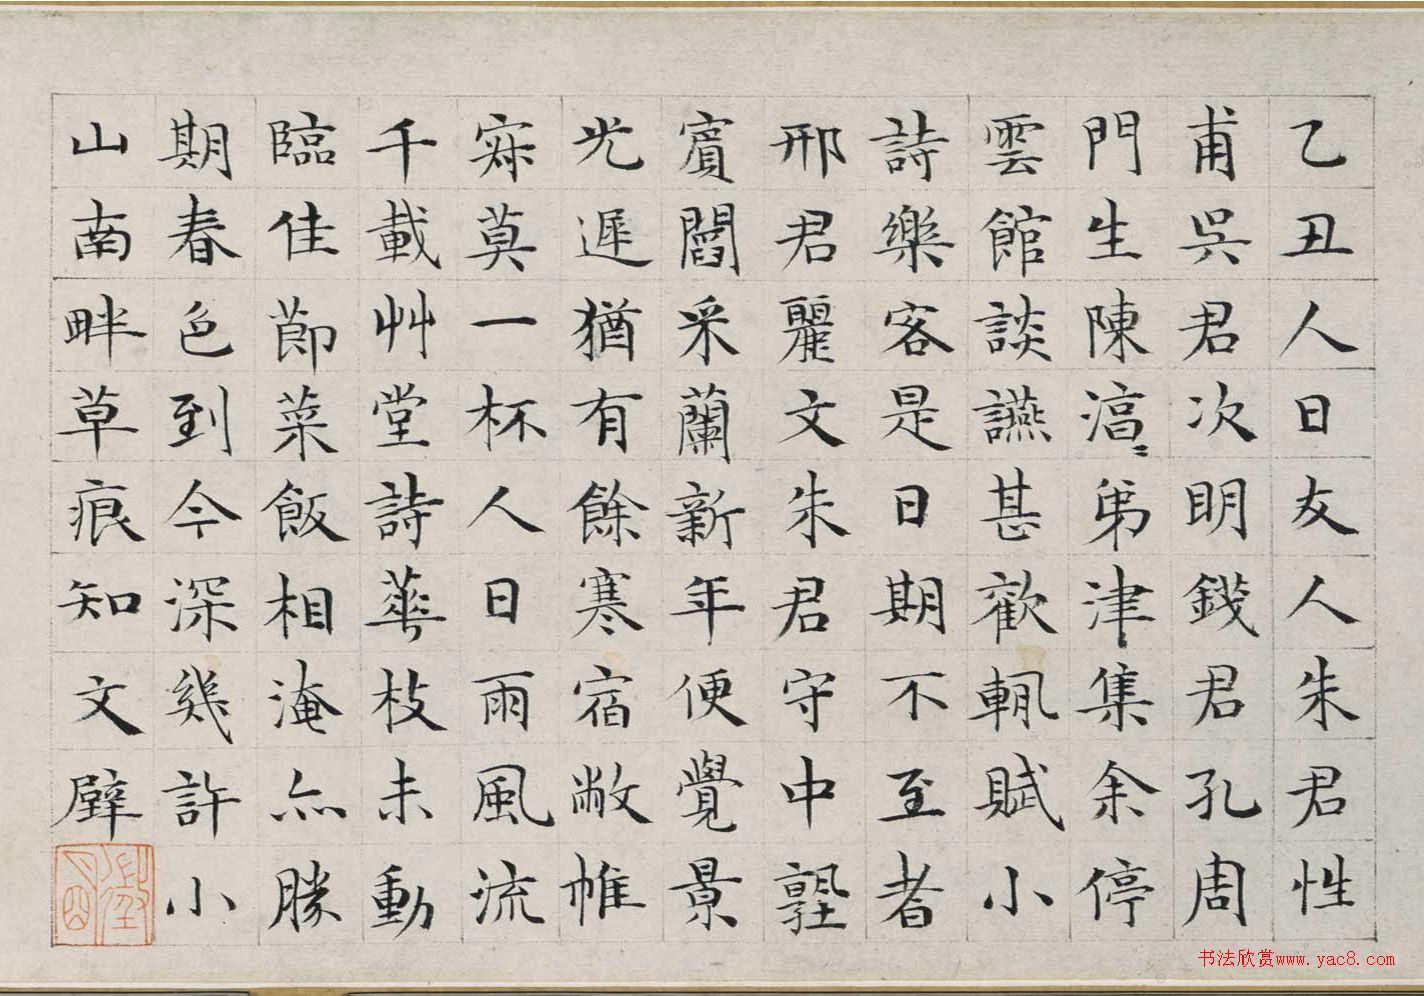 乙丑人日友人朱君性
甫吳君次明錢君孔周
門生陳淳淳弟津集余停
雲館談讌甚歡輒賦小
詩樂客是日期不至者
邢君麗文朱君守中塾
賓閻采蘭新年便覺景
光遲猶有餘寒宿敝帷
寂莫一杯人日雨風流
千載艸堂詩華枝未動
臨佳節菜飯相淹亦勝
期春色到今深幾許小
山南畔草痕知文壁
书法欣赏www.yac8.com